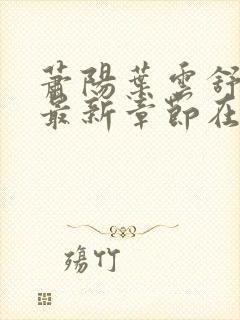 蕭陽葉雲舒
最新章節在
殤竹